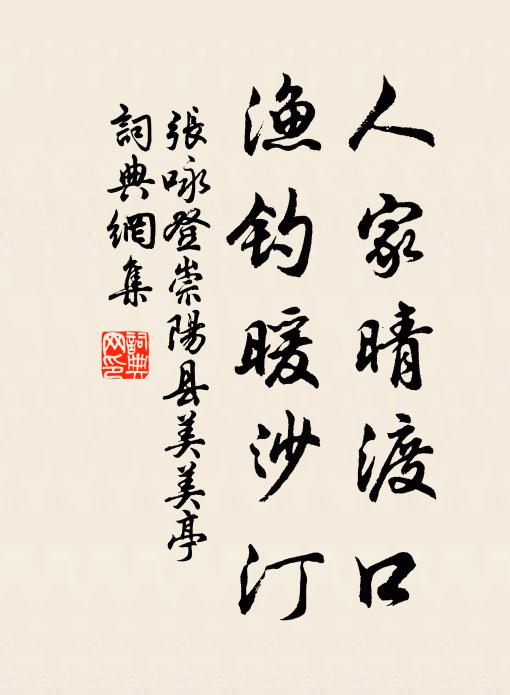 人家晴渡口
漁钓暖沙汀
張咏登崇陽县美美亭
詞典網集
詞典
网印